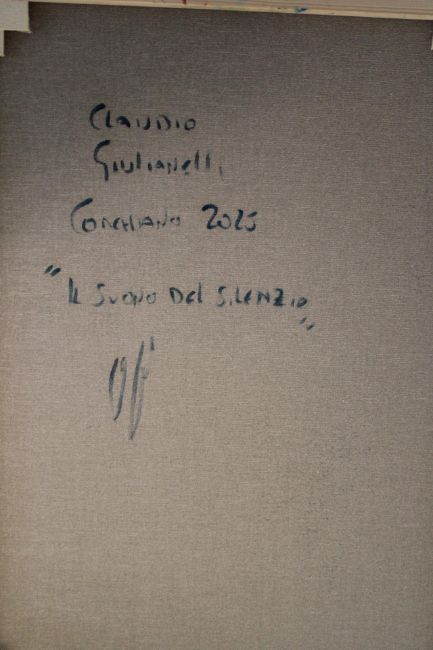 CLAUDIO
GIULIANELLI
CORCHIANO 2025
"IL SUONO DEL SILENZIO"